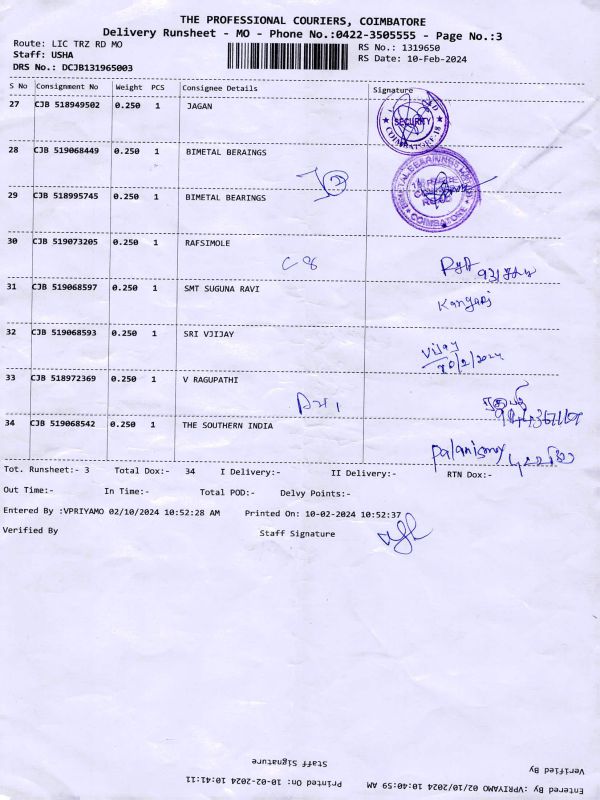 THE PROFESSIONAL COURIERS, COIMBATORE
Delivery Runsheet - MO - Phone No.:0422-3505555 - Page No.:3
Route: LIC TRZ RD MO
RS No.: 1319650
Staff: USHA
RS Date: 10-Feb-2024
DRS No.: DCJB131965003
S No Consignment No Weight PCS Consignee Details Signature
27 CJB 518949502 0.250 1 JAGAN
SECURITY
COIMBATORE-18
28 CJB 519068449 0.250 1 BIMETAL BERAINGS
29 CJB 518995745 0.250 1 BIMETAL BEARINGS
COIMBATORE
30 CJB 519073205 0.250 1 RAFSIMOLE
C 8
31 CJB 519068597 0.250 1 SMT SUGUNA RAVI
32 CJB 519068593 0.250 1 SRI VJIJAY
Vijay
10/2/2024
33 CJB 518972369 0.250 1 V RAGUPATHI
34 CJB 519068542 0.250 1 THE SOUTHERN INDIA
Tot. Runsheet:- 3 Total Dox:- 34 I Delivery:- II Delivery:- RTN Dox:-
Out Time:- In Time:- Total POD:- Delvy Points:-
Entered By :VPRIYAMO 02/10/2024 10:52:28 AM Printed On: 10-02-2024 10:52:37
Verified By Staff Signature
Staff Signature
Verified By
Printed On: 10-02-2024 10:41:11
Entered By :VPRIYAMO 02/10/2024 10:40:59 AM